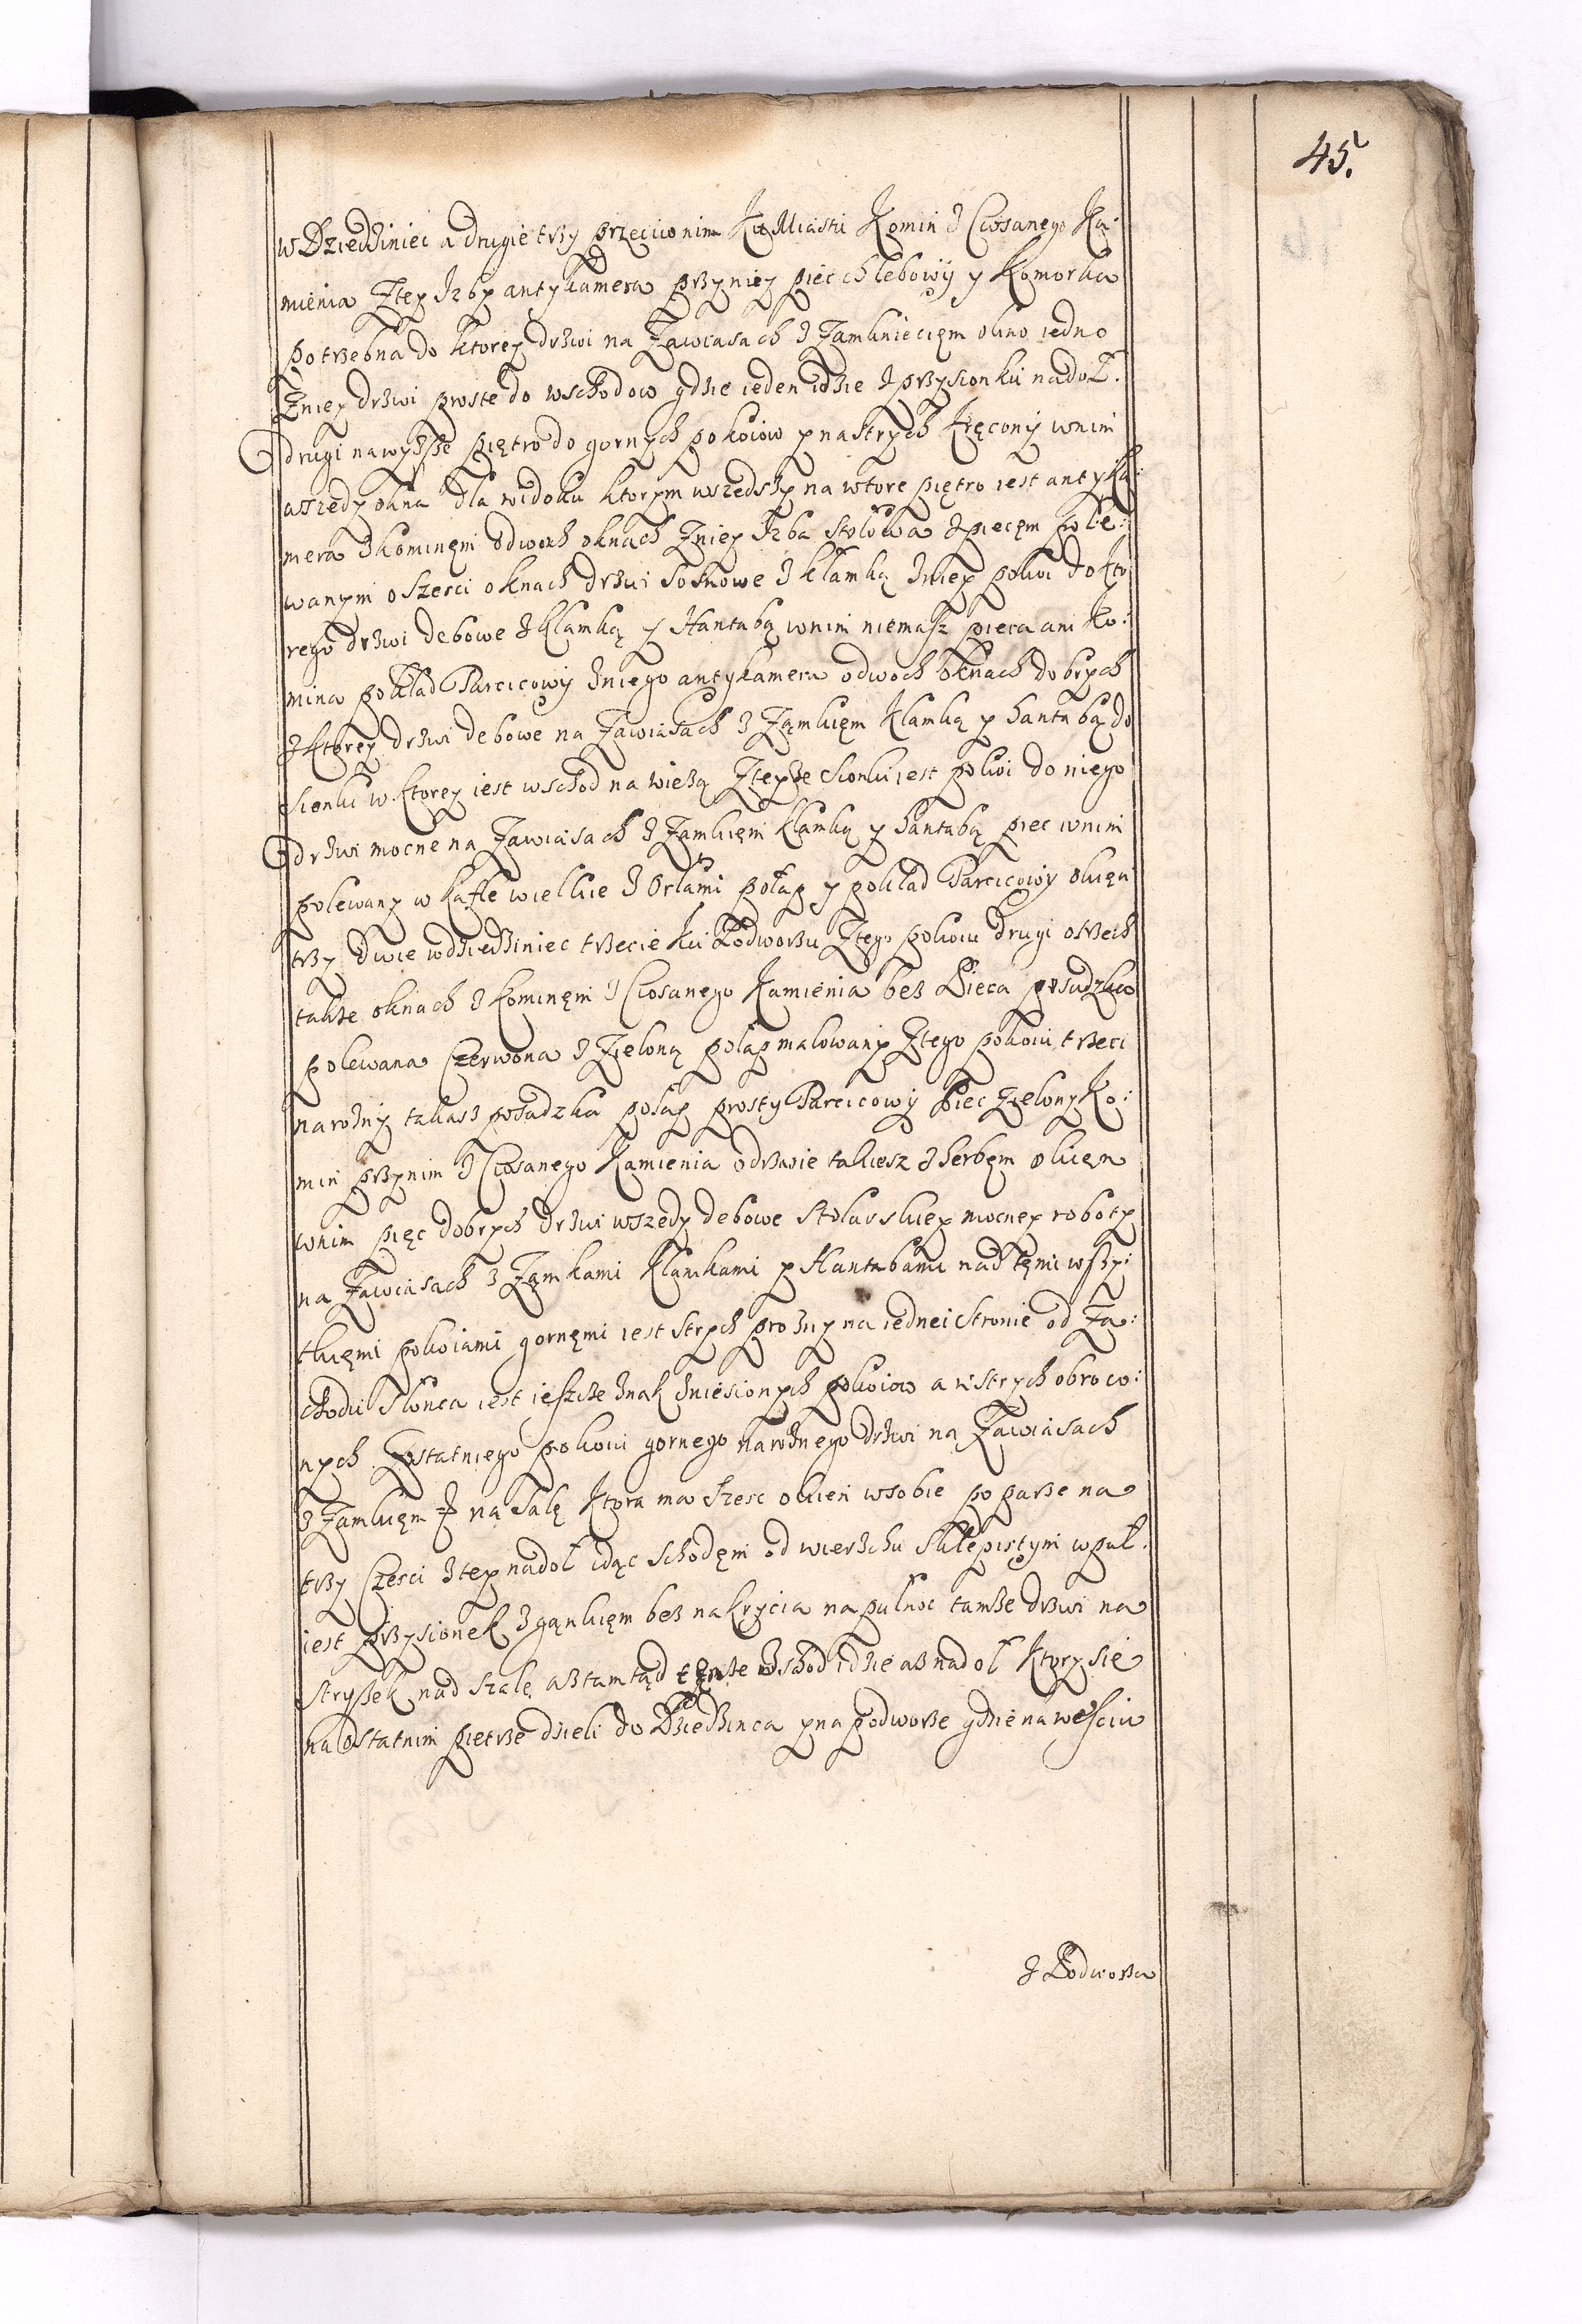 45.
w Dziedziniec a drugie trzy przeciwnim Ku Miastu Komin z Ciosanego Ka:
mienia Ztey Izby antykamera przyniey piec chlebowy y Komorka
potrzebna do ktorey drzwi na Zawiasach z Zamknięcięm okno iedno
Zniey drzwi proste do wschodow gdzie ieden idzie z przysionku nadoł.
drugi nawyższe piętro do gornych pokoiow y na strych kręcony wnim
wszędy okna dla widoku ktorym wszedszy na wtore piętro iest antyka:
mera z kominęm o dwoch oknach Zniey Izba Stołowa z piecęm pole:
wanym o sześci oknach drzwi sosnowe z klamką zniey pokoi do kto
rego drzwi debowe z klamką y Hantabą wnim niemasz pieca ani Ko:
mina pokład Tarcicowy zniego antykamera o dwoch oknach dobrych
z ktorey drzwi debowe na Zawiasach z Zamkięm Klamką y hantabą do
sionki w ktorey iest wschod na wieżą Zteyże sionki iest pokoi do niego
drzwi mocne na Zawiasach z Zamkięm klamką y hantabą piec wnim
polewany w kafle wielkie z Orłami połap y pokład Tarcicowy okięn
trzy dwie wdziedziniec trzecie ku Podworzu Ztego pokoiu drugi o trzech
także oknach z kominęm z Ciosanego Kamienia bez Pieca posadzka
polewana Czerwona z Zieloną połap malowany Ztego pokoiu trzeci
narożny takasz posadzka połap prosty Tarcicowy piec Zielony Ko:
min przynim z Ciosanego Kamienia odrzwie takiesz z herbęm okięn
wnim pięc dobrych drzwi wszędy debowe Stolarskiey mocney roboty
na Zawiasach z Zamkami Klamkami y Hantabami nad tęmi wszy:
tkięmi pokoiami gornęmi iest Strych prożny na iednei Stronie od Za:
chodu Słonca iest ieszcze znak zniesionych pokoiow a w strych obroco:
nych. Zostatniego pokoiu gornego narożnego drzwi na Zawiasach
z Zamkięm na Salę ktora ma sześc okien wsobie po parze na
trzy Części ztey nadoł idąc Schodęm od wierzchu Sklepistym wpuł.
iest przysionek z gankięm bez nakrycia na pułnoc tamże drzwi na
stryszek nad szalę aż tamtąd tenże wschod idzie aż nadoł ktory się
na ostatnim pietrze dzieli do Dziedzinca y na podworze gdzie na weściu
z Podworza